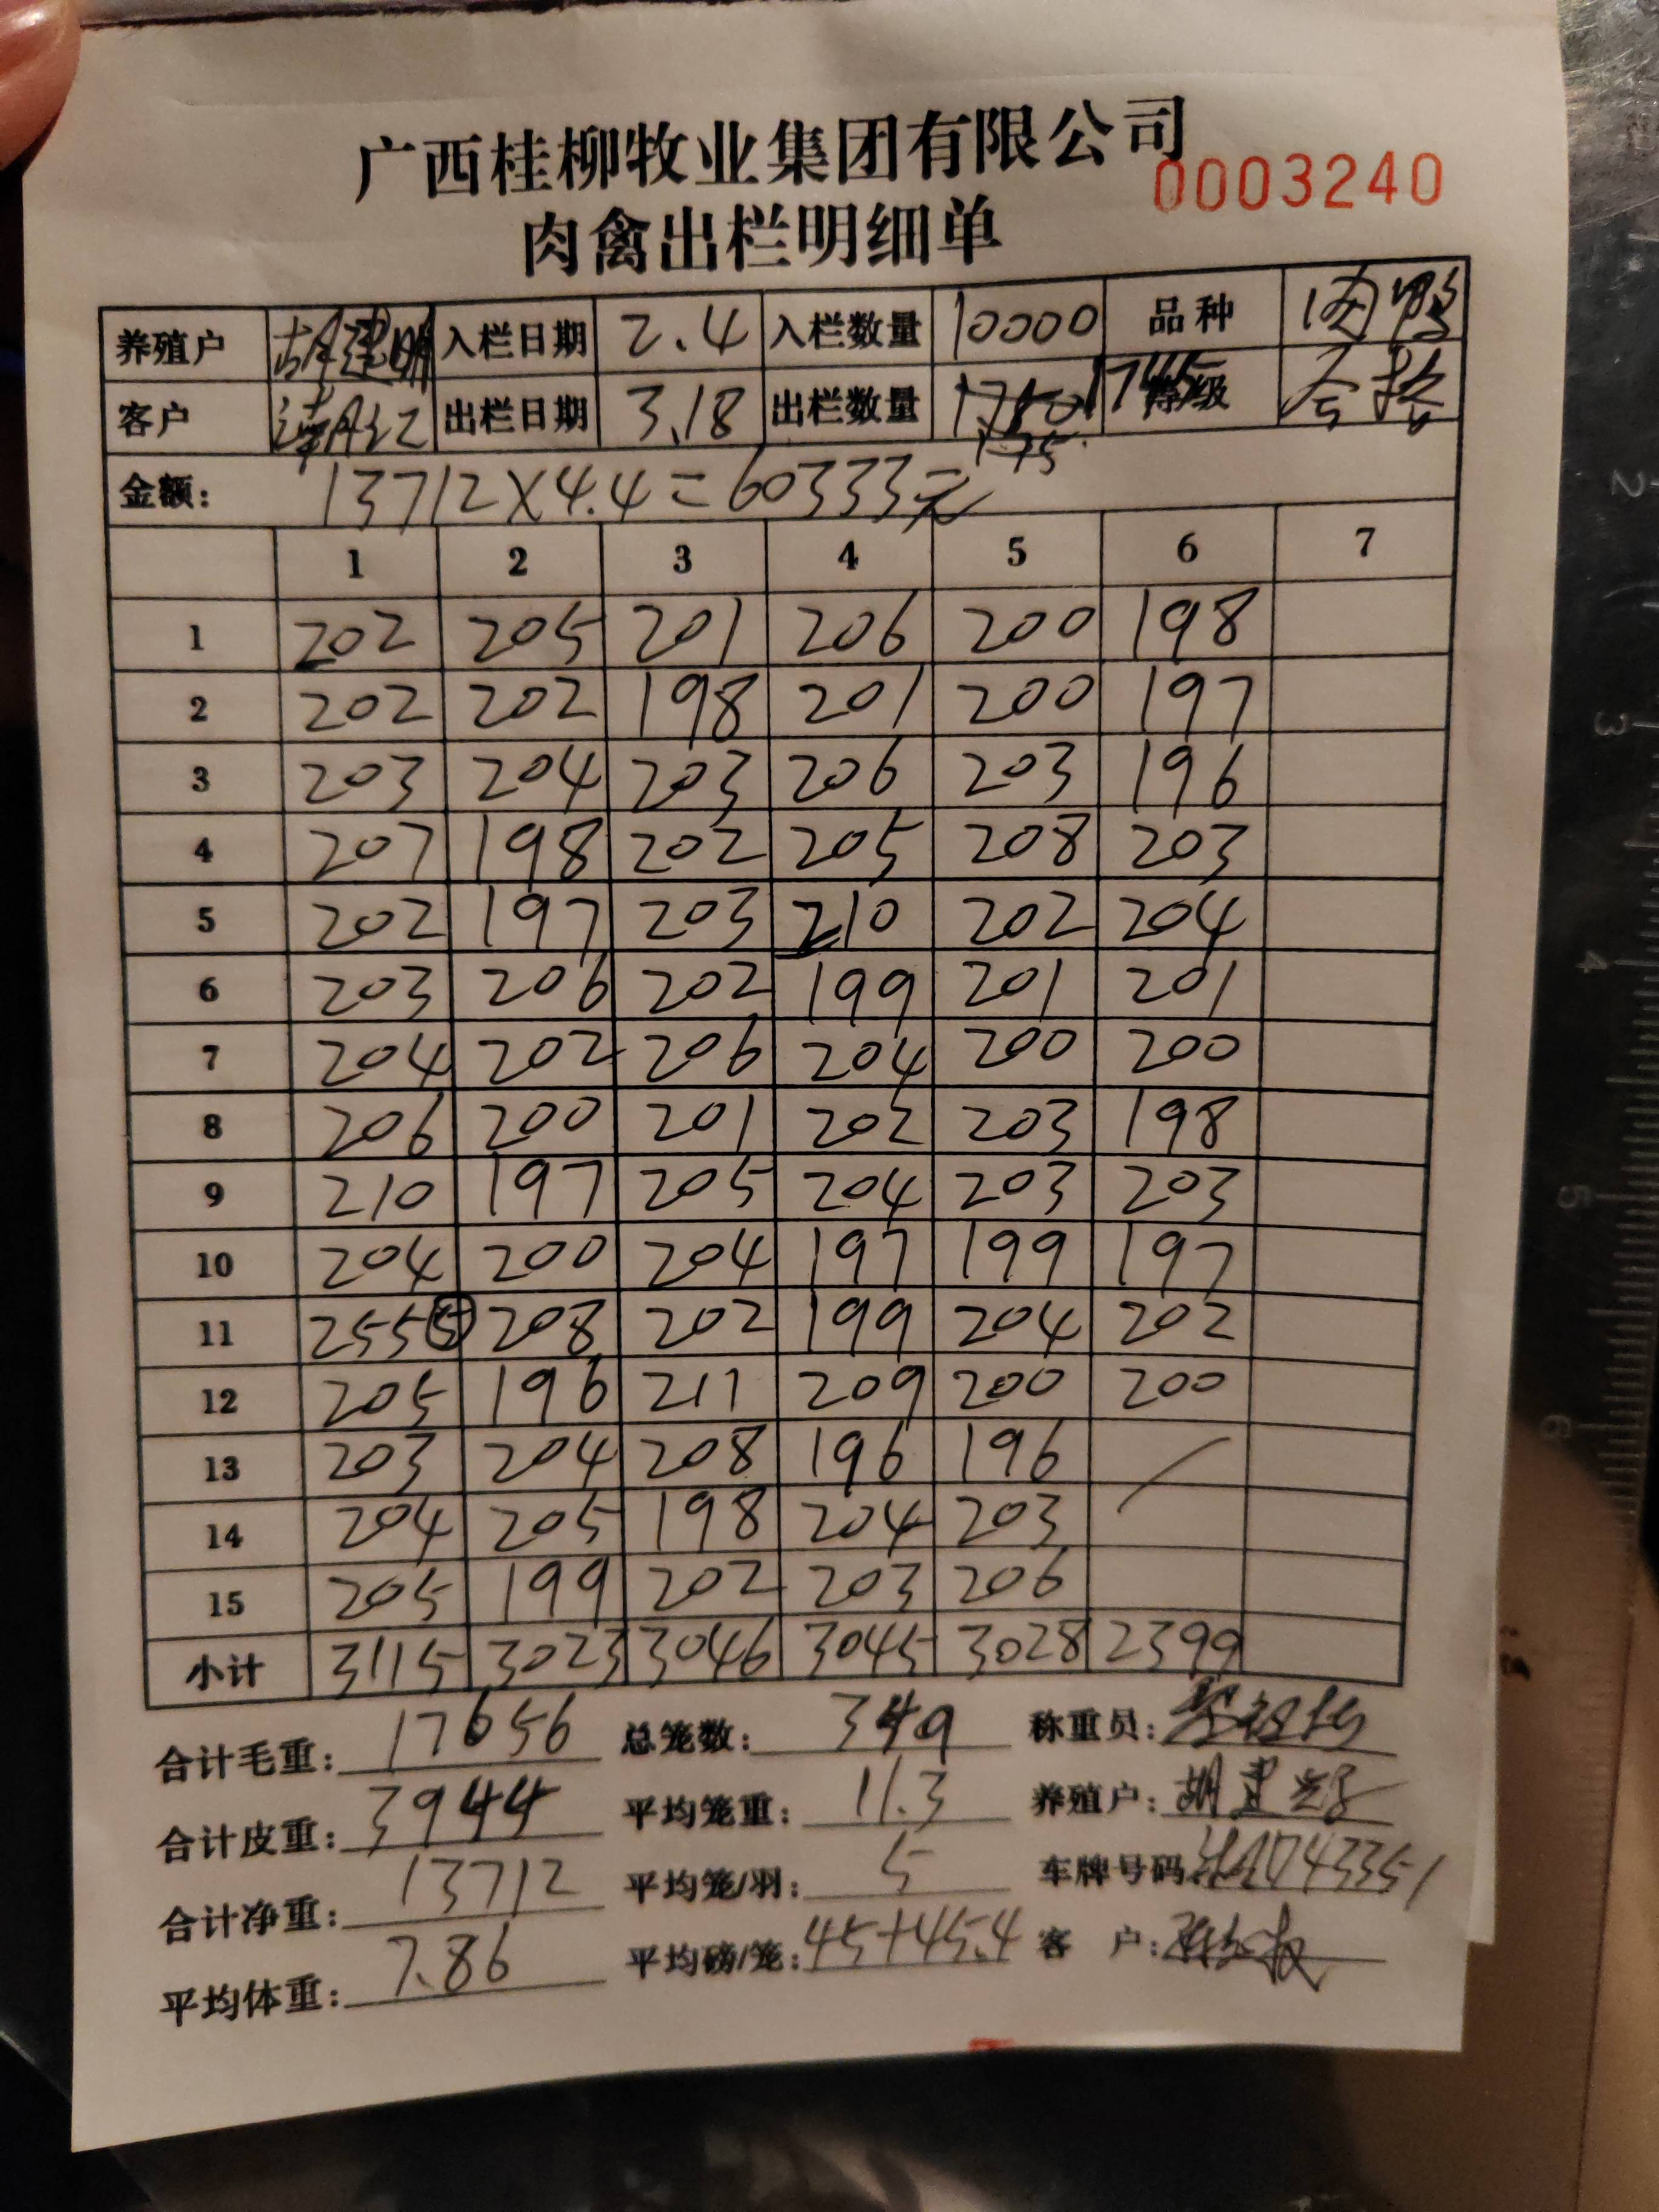 广西桂柳牧业集团有限公司
0003240
肉禽出栏明细单
养殖户 胡建明 入栏日期 2.4 入栏数量 10000 品种 肉鸭
客户 出栏日期 3.18 出栏数量 1745 等级 合格
金额: 13712×4.4=60333元
1 2 3 4 5 6 7
1 202 205 201 206 200 198
2 202 202 198 201 200 197
3 203 204 203 206 203 196
4 207 198 202 205 208 203
5 202 197 203 210 202 204
6 203 206 202 199 201 201
7 204 202 206 204 200 200
8 206 200 201 202 203 198
9 210 197 205 204 203 203
10 204 200 204 197 199 197
11 255⑤ 208 202 199 204 202
12 205 196 211 209 200 200
13 203 204 208 196 196
14 204 205 198 204 203
15 205 199 202 203 206
小计 3115 3023 3046 3045 3028 2399
合计毛重: 17656 总笼数: 349 称重员:
合计皮重: 3944 平均笼重: 11.3 养殖户: 胡建
合计净重: 13712 平均笼/羽: 5 车牌号码
平均体重: 7.86 平均磅/笼: 45+45.4 客 户:
1
2
3
4
5
6